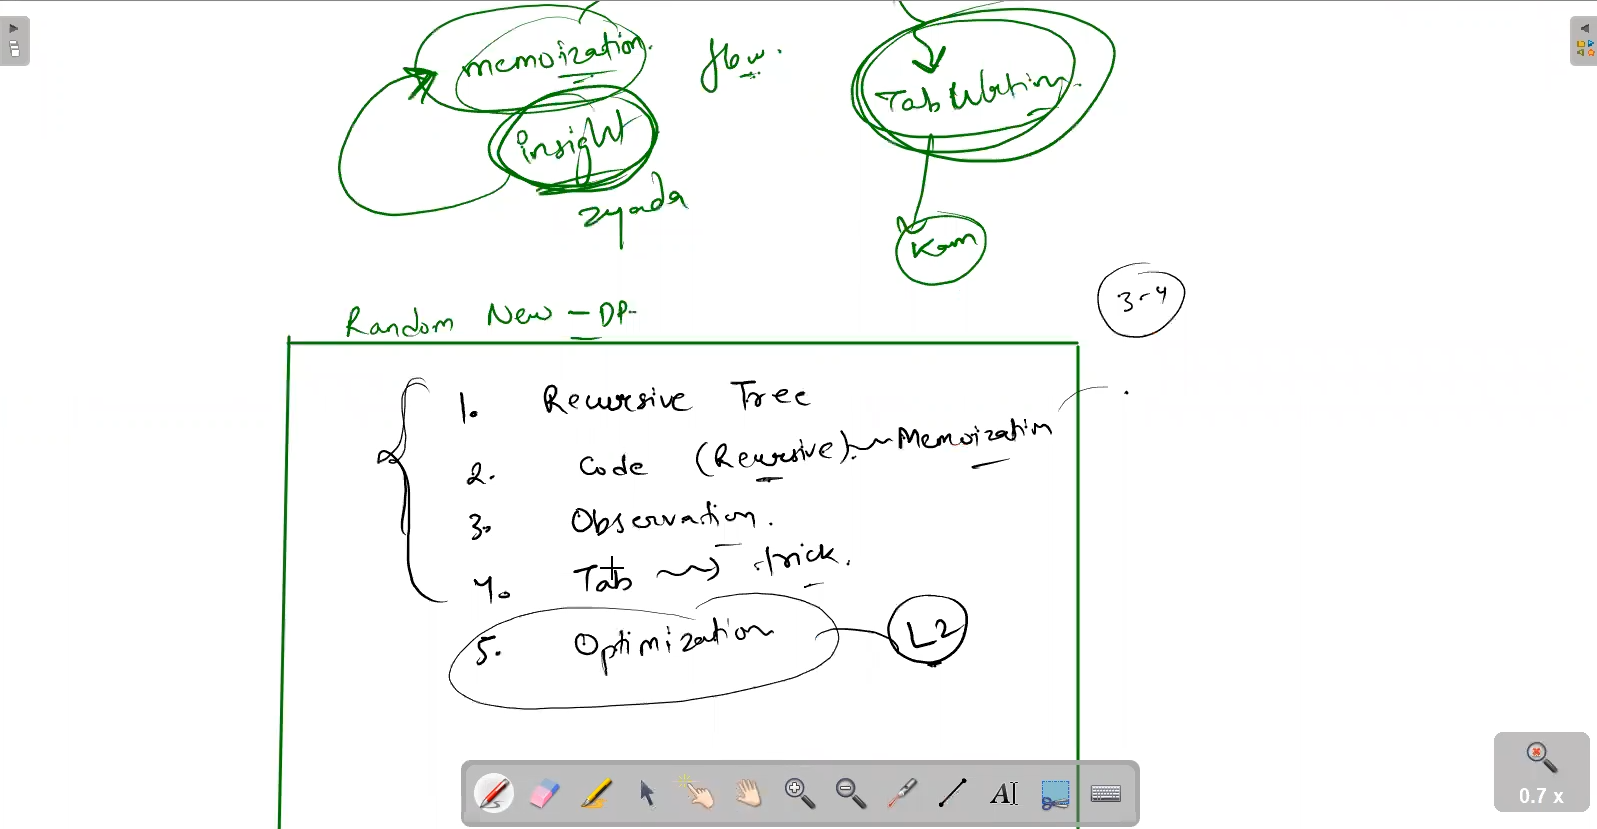 memoization.
flow.
Tab Writing.
insight
zyada
Kam
3-4
Random New - DP-
1. Recursive Tree
2. Code (Recursive). Memoization
3. Observation.
4. Tab trick.
5. Optimization L2
AI
0.7 x